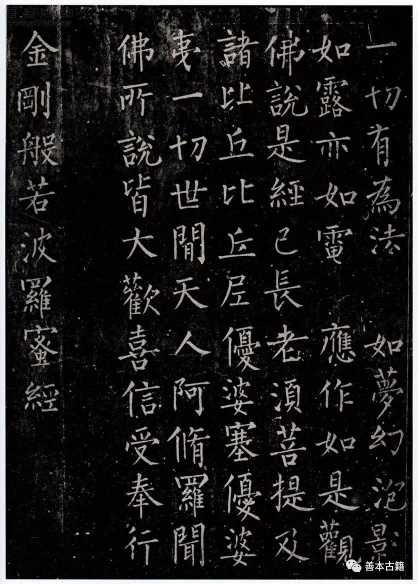 一切有為法 如夢幻泡影
如露亦如電 應作如是觀
佛說是經已長老須菩提及
諸比丘比丘尼優婆塞優婆
夷一切世閒天人阿脩羅聞
佛所說皆大歡喜信受奉行
金剛般若波羅蜜經
善本古籍